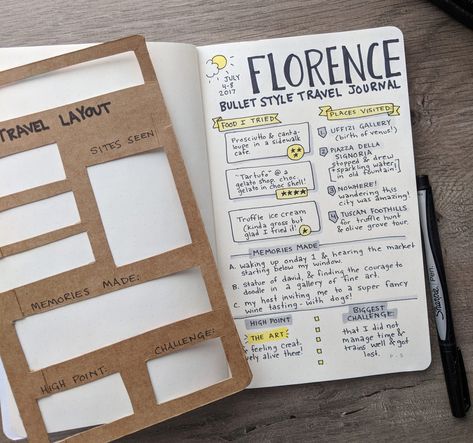 TRAVEL LAYOUT
SITES SEEN
MEMORIES MADE:
HIGH POINT:
CHALLENGE:
JULY
4-8
2017
FLORENCE
BULLET STYLE TRAVEL JOURNAL
FOOD I TRIED
Prosciutto & canta-
loupe in a sidewalk
cafe.
"Tartufo" @ a
gelato shop. choc.
gelato in choc shell!
Truffle ice cream
(kinda gross but
glad I tried it!
PLACES VISITED
1 UFFIZI GALLERY
(birth of venus!)
2 PIAZZA DELLA
SIGNORIA
stopped & drew
sparkling water
in old fountain!
3 NOWHERE!
wandering this
city was amazing!
4 TUSCAN FOOTHILLS
for truffle hunt
& olive grove tour.
MEMORIES MADE
A. waking up on day 1 & hearing the market
starting below my window.
B. statue of david, & finding the courage to
doodle in a gallery of fine art.
C. my host inviting me to a super fancy
wine tasting - with dogs!
HIGH POINT
THE ART
feeling creat
vely alive there!
BIGGEST
CHALLENGE:
that I did not
manage time &
trains well & got
lost.
Sharpie Pen